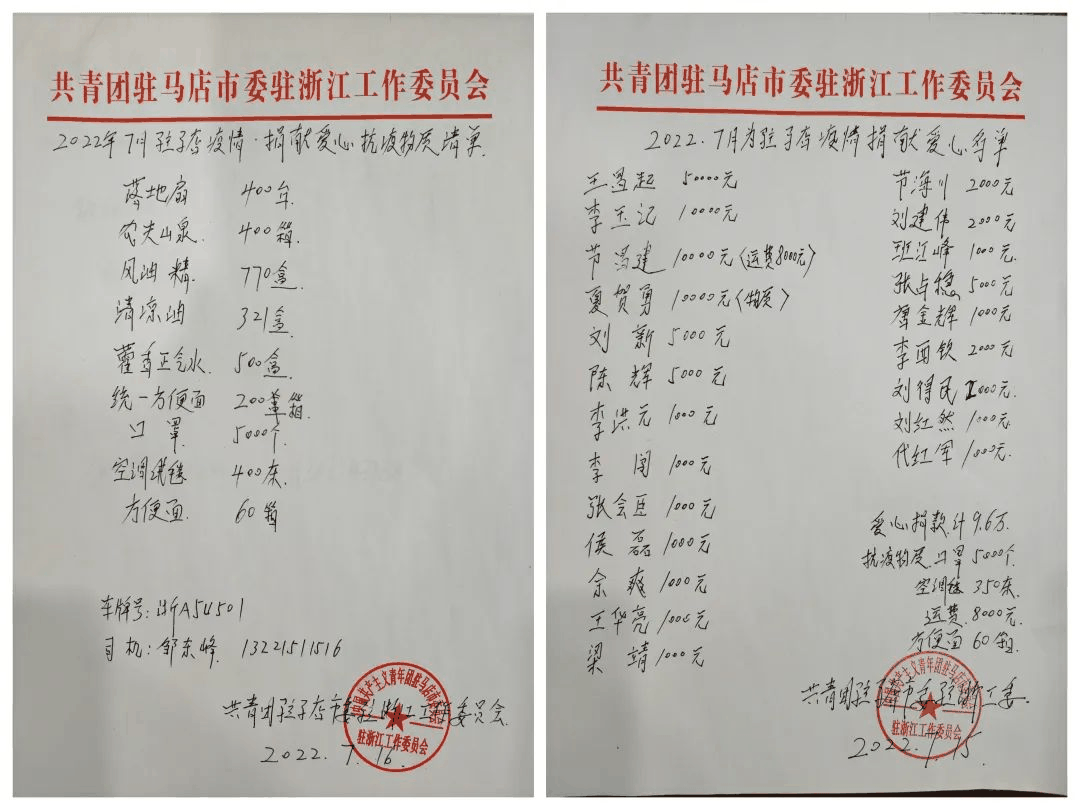 共青团驻马店市委驻浙江工作委员会
2022年7月驻马店疫情·捐献爱心抗疫物资清单
落地扇 400台
农夫山泉. 400箱
风油精 770盒
清凉油 321盒
藿香正气水. 500盒.
统一方便面 200箱.
口罩 5000个.
空调毯 400条.
方便面. 60箱
车牌号:浙A54501
司机:邹东峰. 13221511516
共青团驻马店市委驻浙江工作委员会.
2022.7.16
中国共产主义青年团驻马店市委员会
驻浙江工作委员会
共青团驻马店市委驻浙江工作委员会
2022.7月为驻马店疫情捐献爱心名单
王昌起 50000元
李玉记 10000元
节昌建 10000元(运费8000元)
夏贺勇 10000元(物资)
刘新 5000元
陈辉 5000元
李洪元 1000元
李闯 1000元
张会臣 1000元
侯磊 1000元
余爽 1000元
王华亮 1000元
梁靖 1000元
节海川 2000元
刘建伟 2000元
班江峰 1000元
张占稳 5000元
唐金辉 1000元
李西钦 2000元
刘得民 1000元.
刘红然 1000元
代红军 1000元.
爱心捐款计9.6万.
抗疫物资.口罩5000个.
空调毯 350条.
运费.8000元.
方便面60箱.
共青团驻马店市委驻浙江工委.
2022.7.15
中国共产主义青年团驻马店市委员会
驻浙江工作委员会